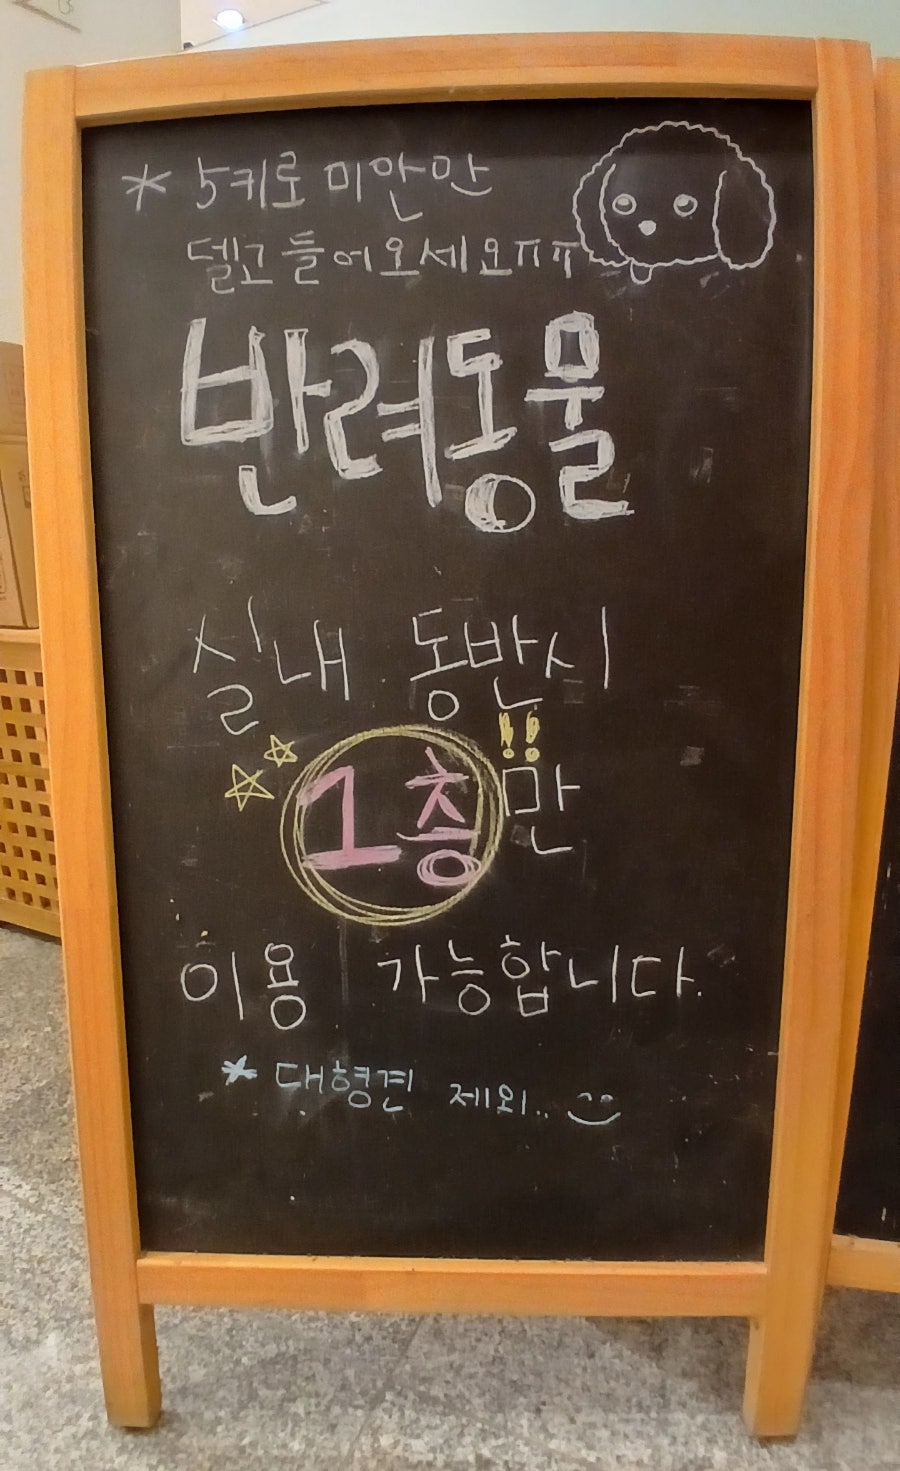 * 5키로 미만만
델고 들어오세요ㅠㅠ
반려동물
실내 동반시
1층만!!
이용 가능합니다.
* 대형견 제외..